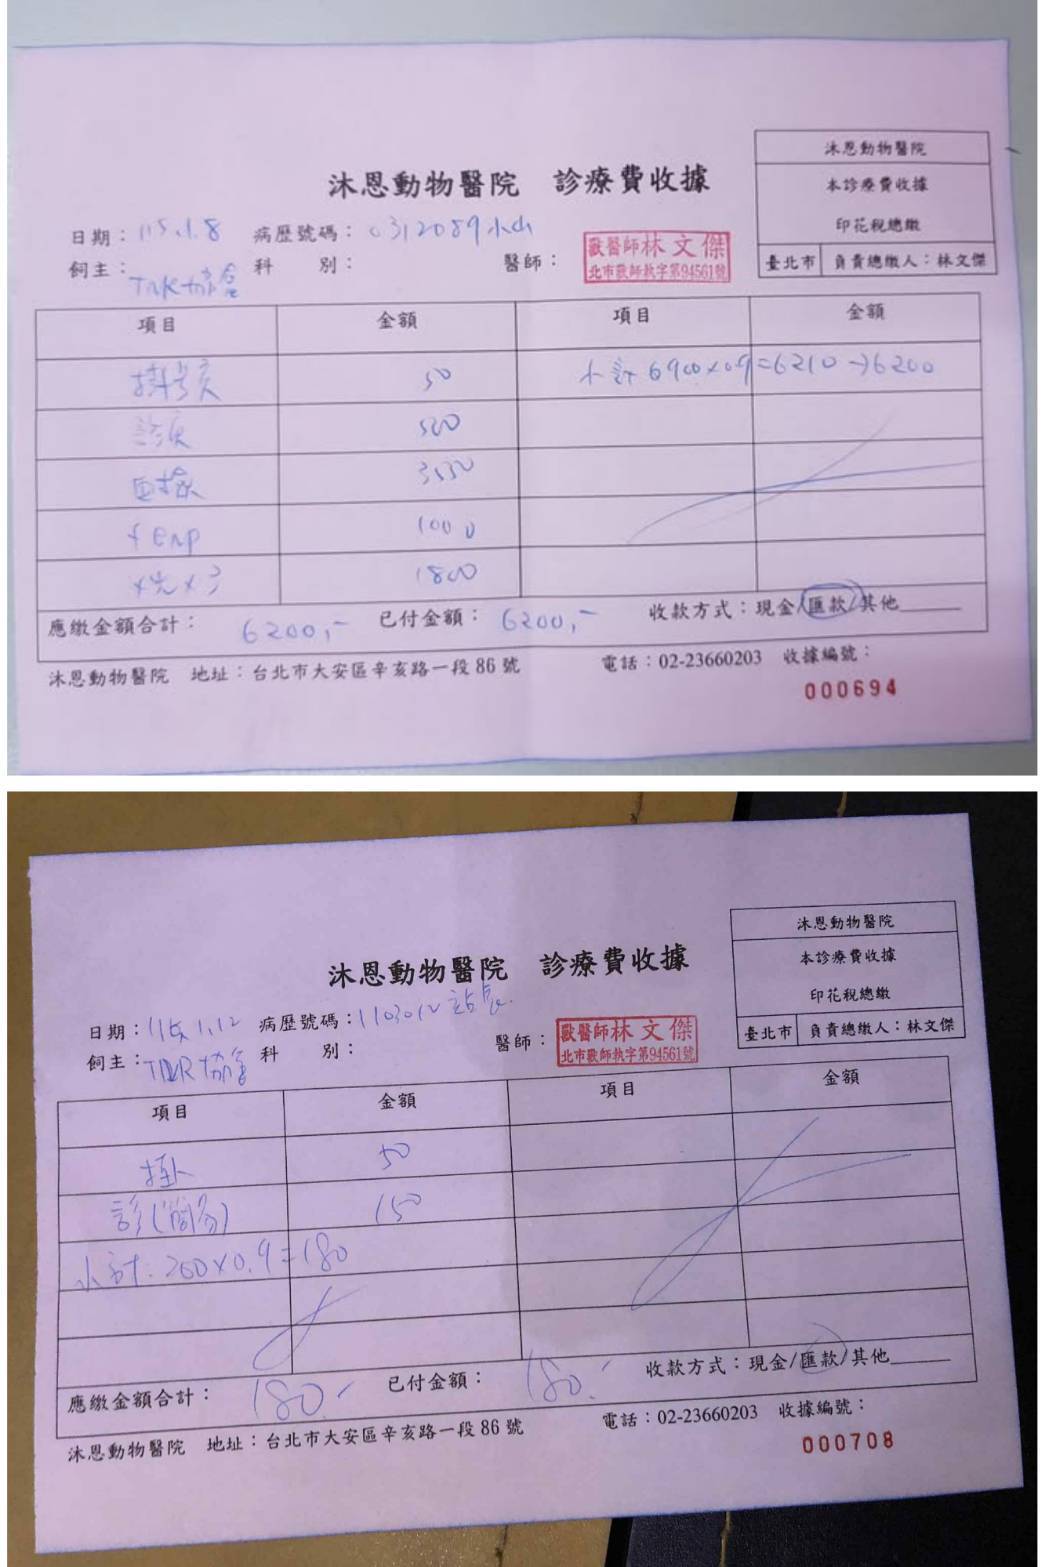 沐恩動物醫院
本診療費收據
印花稅總繳
臺北市 負責總繳人：林文傑
沐恩動物醫院 診療費收據
日期：115.1.8 病歷號碼：0312089 小山
飼主：TNR協會 科 別： 醫師： 獸醫師林文傑
北市獸師執字第94561號
項目 金額 項目 金額
掛號費 50 小計 6900×0.9=6210→6200
診療 520
3530
1000
1800
應繳金額合計： 6200,- 已付金額： 6200,- 收款方式：現金/匯款/其他
沐恩動物醫院 地址：台北市大安區辛亥路一段 86 號 電話：02-23660203 收據編號：
000694
沐恩動物醫院
本診療費收據
印花稅總繳
臺北市 負責總繳人：林文傑
沐恩動物醫院 診療費收據
日期：115.1.12 病歷號碼：1103012 站長
飼主：TNR協會 科 別： 醫師： 獸醫師林文傑
北市獸師執字第94561號
項目 金額 項目 金額
掛 50
診(簡易) 150
小計：200×0.9=180
應繳金額合計： 180.- 已付金額： 180.- 收款方式：現金/匯款/其他
沐恩動物醫院 地址：台北市大安區辛亥路一段 86 號 電話：02-23660203 收據編號：
000708